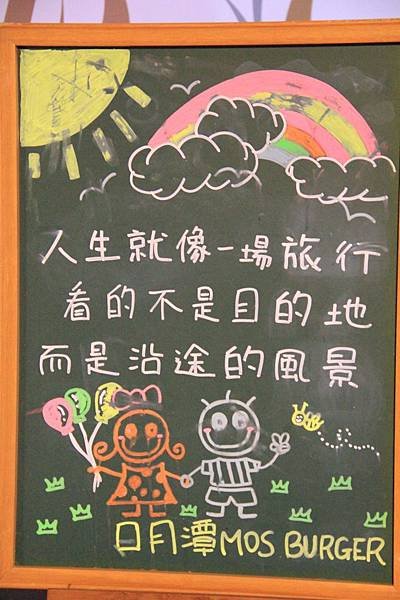 人生就像一場旅行
看的不是目的地
而是沿途的風景
日月潭MOS BURGER